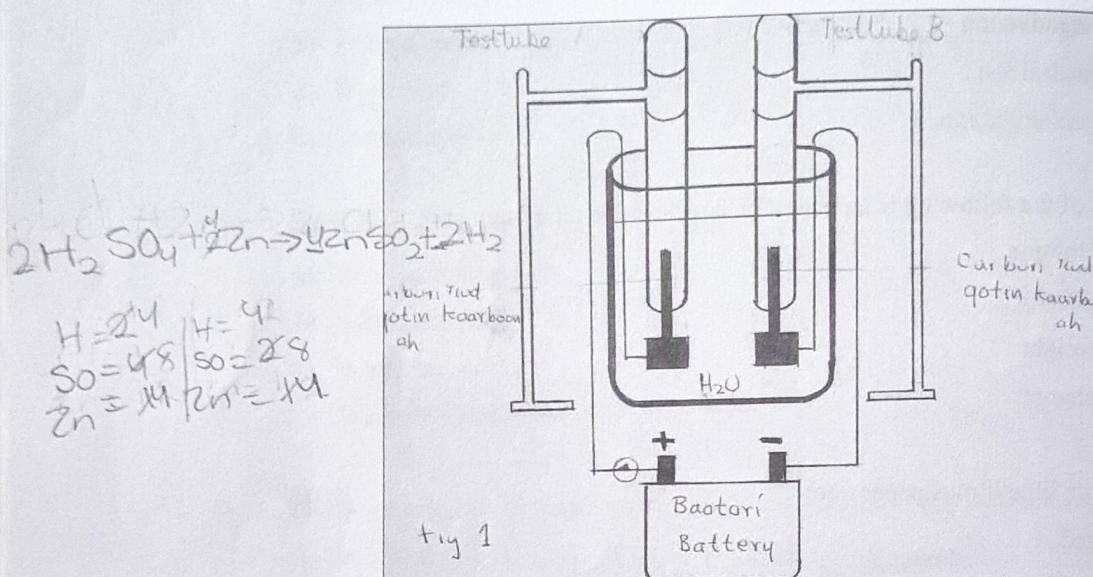 Testtube
Testtube B
2H₂ SO₄ + Zn → 4ZnSO₂ + 2H₂
H =
H =
SO = 8
SO = 8
Zn =
Zn =
rod
qotin kaarboon
ah
Carbon rod
qotin kaarb
ah
H₂O
+
-
Baatari
Battery
fig 1